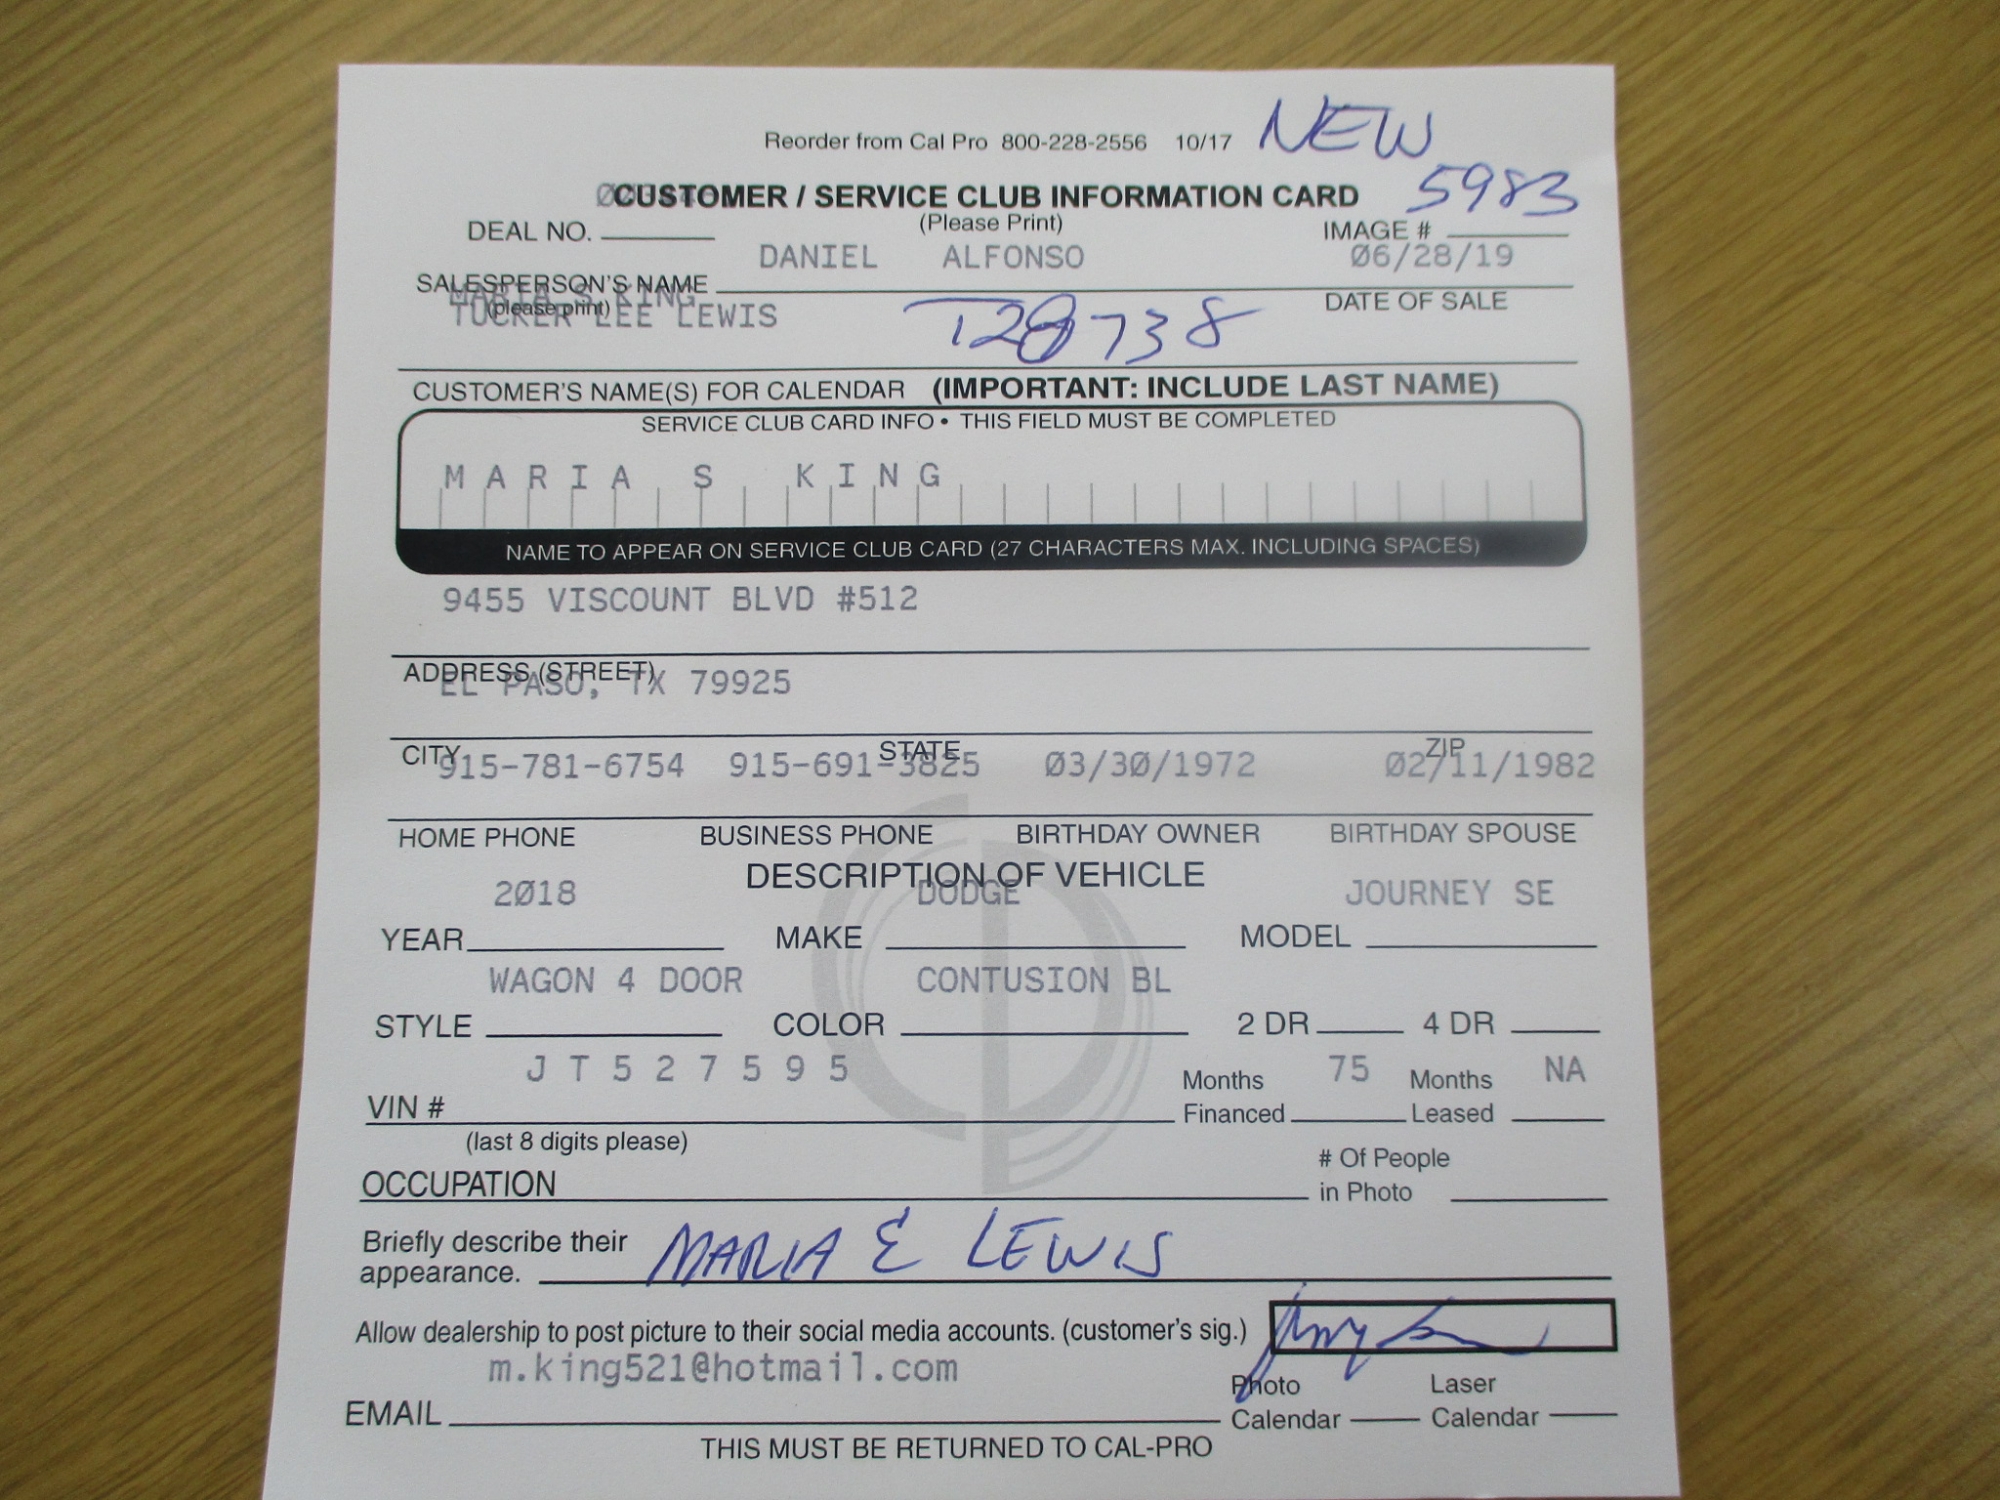 Reorder from Cal Pro 800-228-2556 10/17 NEW
CUSTOMER / SERVICE CLUB INFORMATION CARD 5983
(Please Print)
DEAL NO. IMAGE #
DANIEL ALFONSO 06/28/19
SALESPERSON'S NAME
(please print) DATE OF SALE
MARIA S KING
TUCKER LEE LEWIS T28738
CUSTOMER'S NAME(S) FOR CALENDAR (IMPORTANT: INCLUDE LAST NAME)
SERVICE CLUB CARD INFO • THIS FIELD MUST BE COMPLETED
MARIA S KING
NAME TO APPEAR ON SERVICE CLUB CARD (27 CHARACTERS MAX. INCLUDING SPACES)
9455 VISCOUNT BLVD #512
ADDRESS (STREET)
EL PASO, TX 79925
CITY STATE ZIP
915-781-6754 915-691-3825 03/30/1972 02/11/1982
HOME PHONE BUSINESS PHONE BIRTHDAY OWNER BIRTHDAY SPOUSE
DESCRIPTION OF VEHICLE
2018 DODGE JOURNEY SE
YEAR MAKE MODEL
WAGON 4 DOOR CONTUSION BL
STYLE COLOR 2 DR 4 DR
J T 5 2 7 5 9 5 Months 75 Months NA
VIN # Financed Leased
(last 8 digits please)
# Of People
OCCUPATION in Photo
Briefly describe their MARIA & LEWIS
appearance.
Allow dealership to post picture to their social media accounts. (customer's sig.)
m.king521@hotmail.com
Photo Laser
EMAIL Calendar Calendar
THIS MUST BE RETURNED TO CAL-PRO